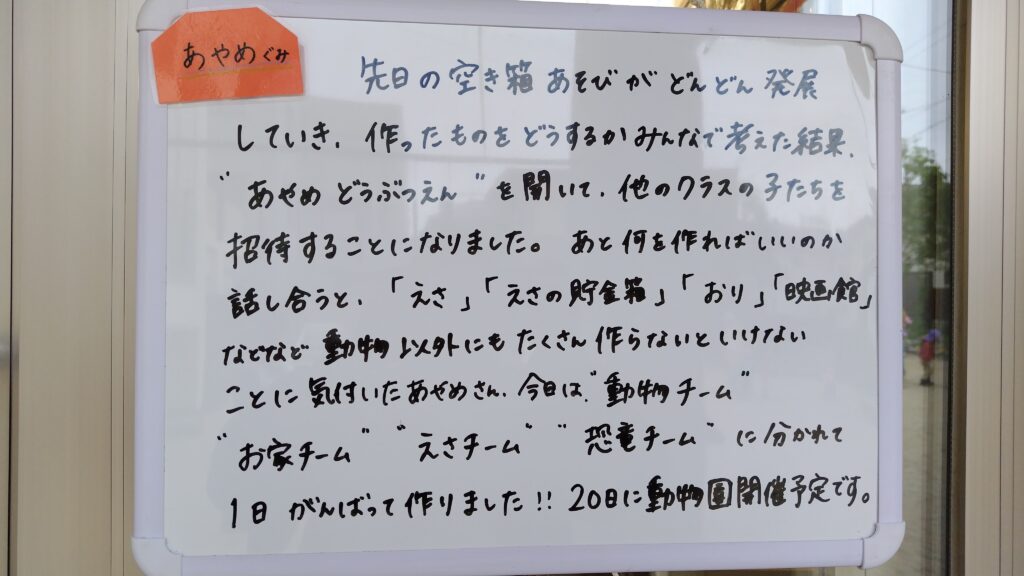 あやめぐみ
先日の空き箱あそびがどんどん発展
していき、作ったものをどうするかみんなで考えた結果、
"あやめどうぶつえん"を開いて、他のクラスの子たちを
招待することになりました。あと何を作ればいいのか
話し合うと、「えさ」「えさの貯金箱」「おり」「映画館」
などなど動物以外にもたくさん作らないといけない
ことに気付いたあやめさん、今日は、"動物チーム"
"お家チーム" "えさチーム" "恐竜チーム"に分かれて
1日がんばって作りました!! 20日に動物園開催予定です。